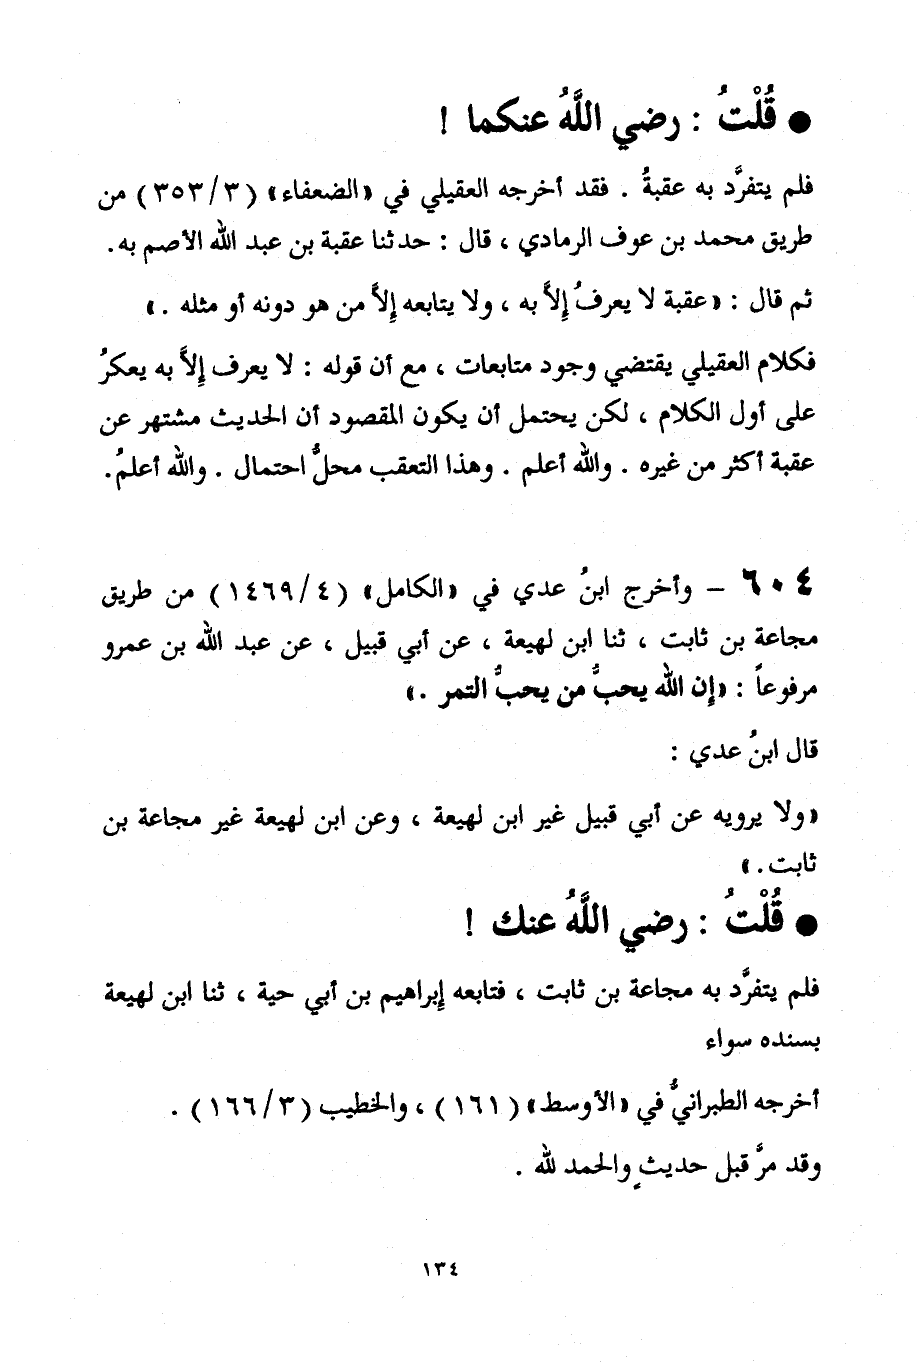 ● قُلْتُ : رضي اللَّهُ عنكما !
فلم يتفرَّد به عقبةُ . فقد أخرجه العقيلي في «الضعفاء» (٣/ ٣٥٣) من
طريق محمد بن عوف الرمادي ، قال : حدثنا عقبة بن عبد الله الأصم به.
ثم قال : «عقبة لا يعرفُ إلاَّ به ، ولا يتابعه إلاَّ من هو دونه أو مثله .»
فكلام العقيلي يقتضي وجود متابعات ، مع أن قوله : لا يعرف إلاَّ به يعكرُ
على أول الكلام ، لكن يحتمل أن يكون المقصود أن الحديث مشتهر عن
عقبة أكثر من غيره . والله أعلم . وهذا التعقب محلُّ احتمال . والله أعلمُ.
٦٠٤ – وأخرج ابنُ عدي في «الكامل» (٤/ ١٤٦٩) من طريق
مجاعة بن ثابت ، ثنا ابن لهيعة ، عن أبي قبيل ، عن عبد الله بن عمرو
مرفوعاً : «إن الله يحبُّ من يحبُّ التمر .»
قال ابنُ عدي :
«ولا يرويه عن أبي قبيل غير ابن لهيعة ، وعن ابن لهيعة غير مجاعة بن
ثابت.»
● قُلْتُ : رضي اللَّهُ عنك !
فلم يتفرَّد به مجاعة بن ثابت ، فتابعه إبراهيم بن أبي حية ، ثنا ابن لهيعة
بسنده سواء
أخرجه الطبرانيُّ في «الأوسط» (١٦١) ، والخطيب (٣/ ١٦٦) .
وقد مرَّ قبل حديثٍ والحمد لله .
١٣٤